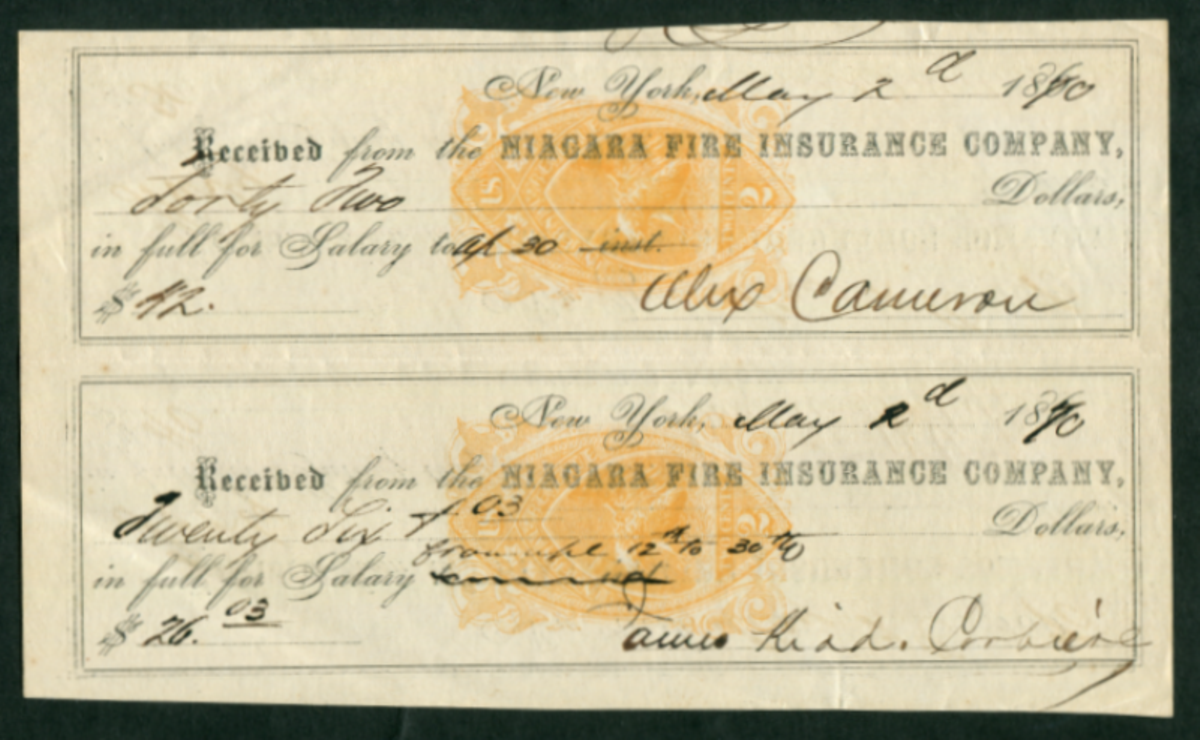 New York, May 2d 1870
Received from the NIAGARA FIRE INSURANCE COMPANY,
Forty Two Dollars,
in full for Salary to Ap 30 inst.
$ 42.
Alex Cameron
New York, May 2d 1870
Received from the NIAGARA FIRE INSURANCE COMPANY,
Twenty Six & 03 Dollars,
from 12th to 30th
in full for Salary inst
$ 26. 03
James Kidd.